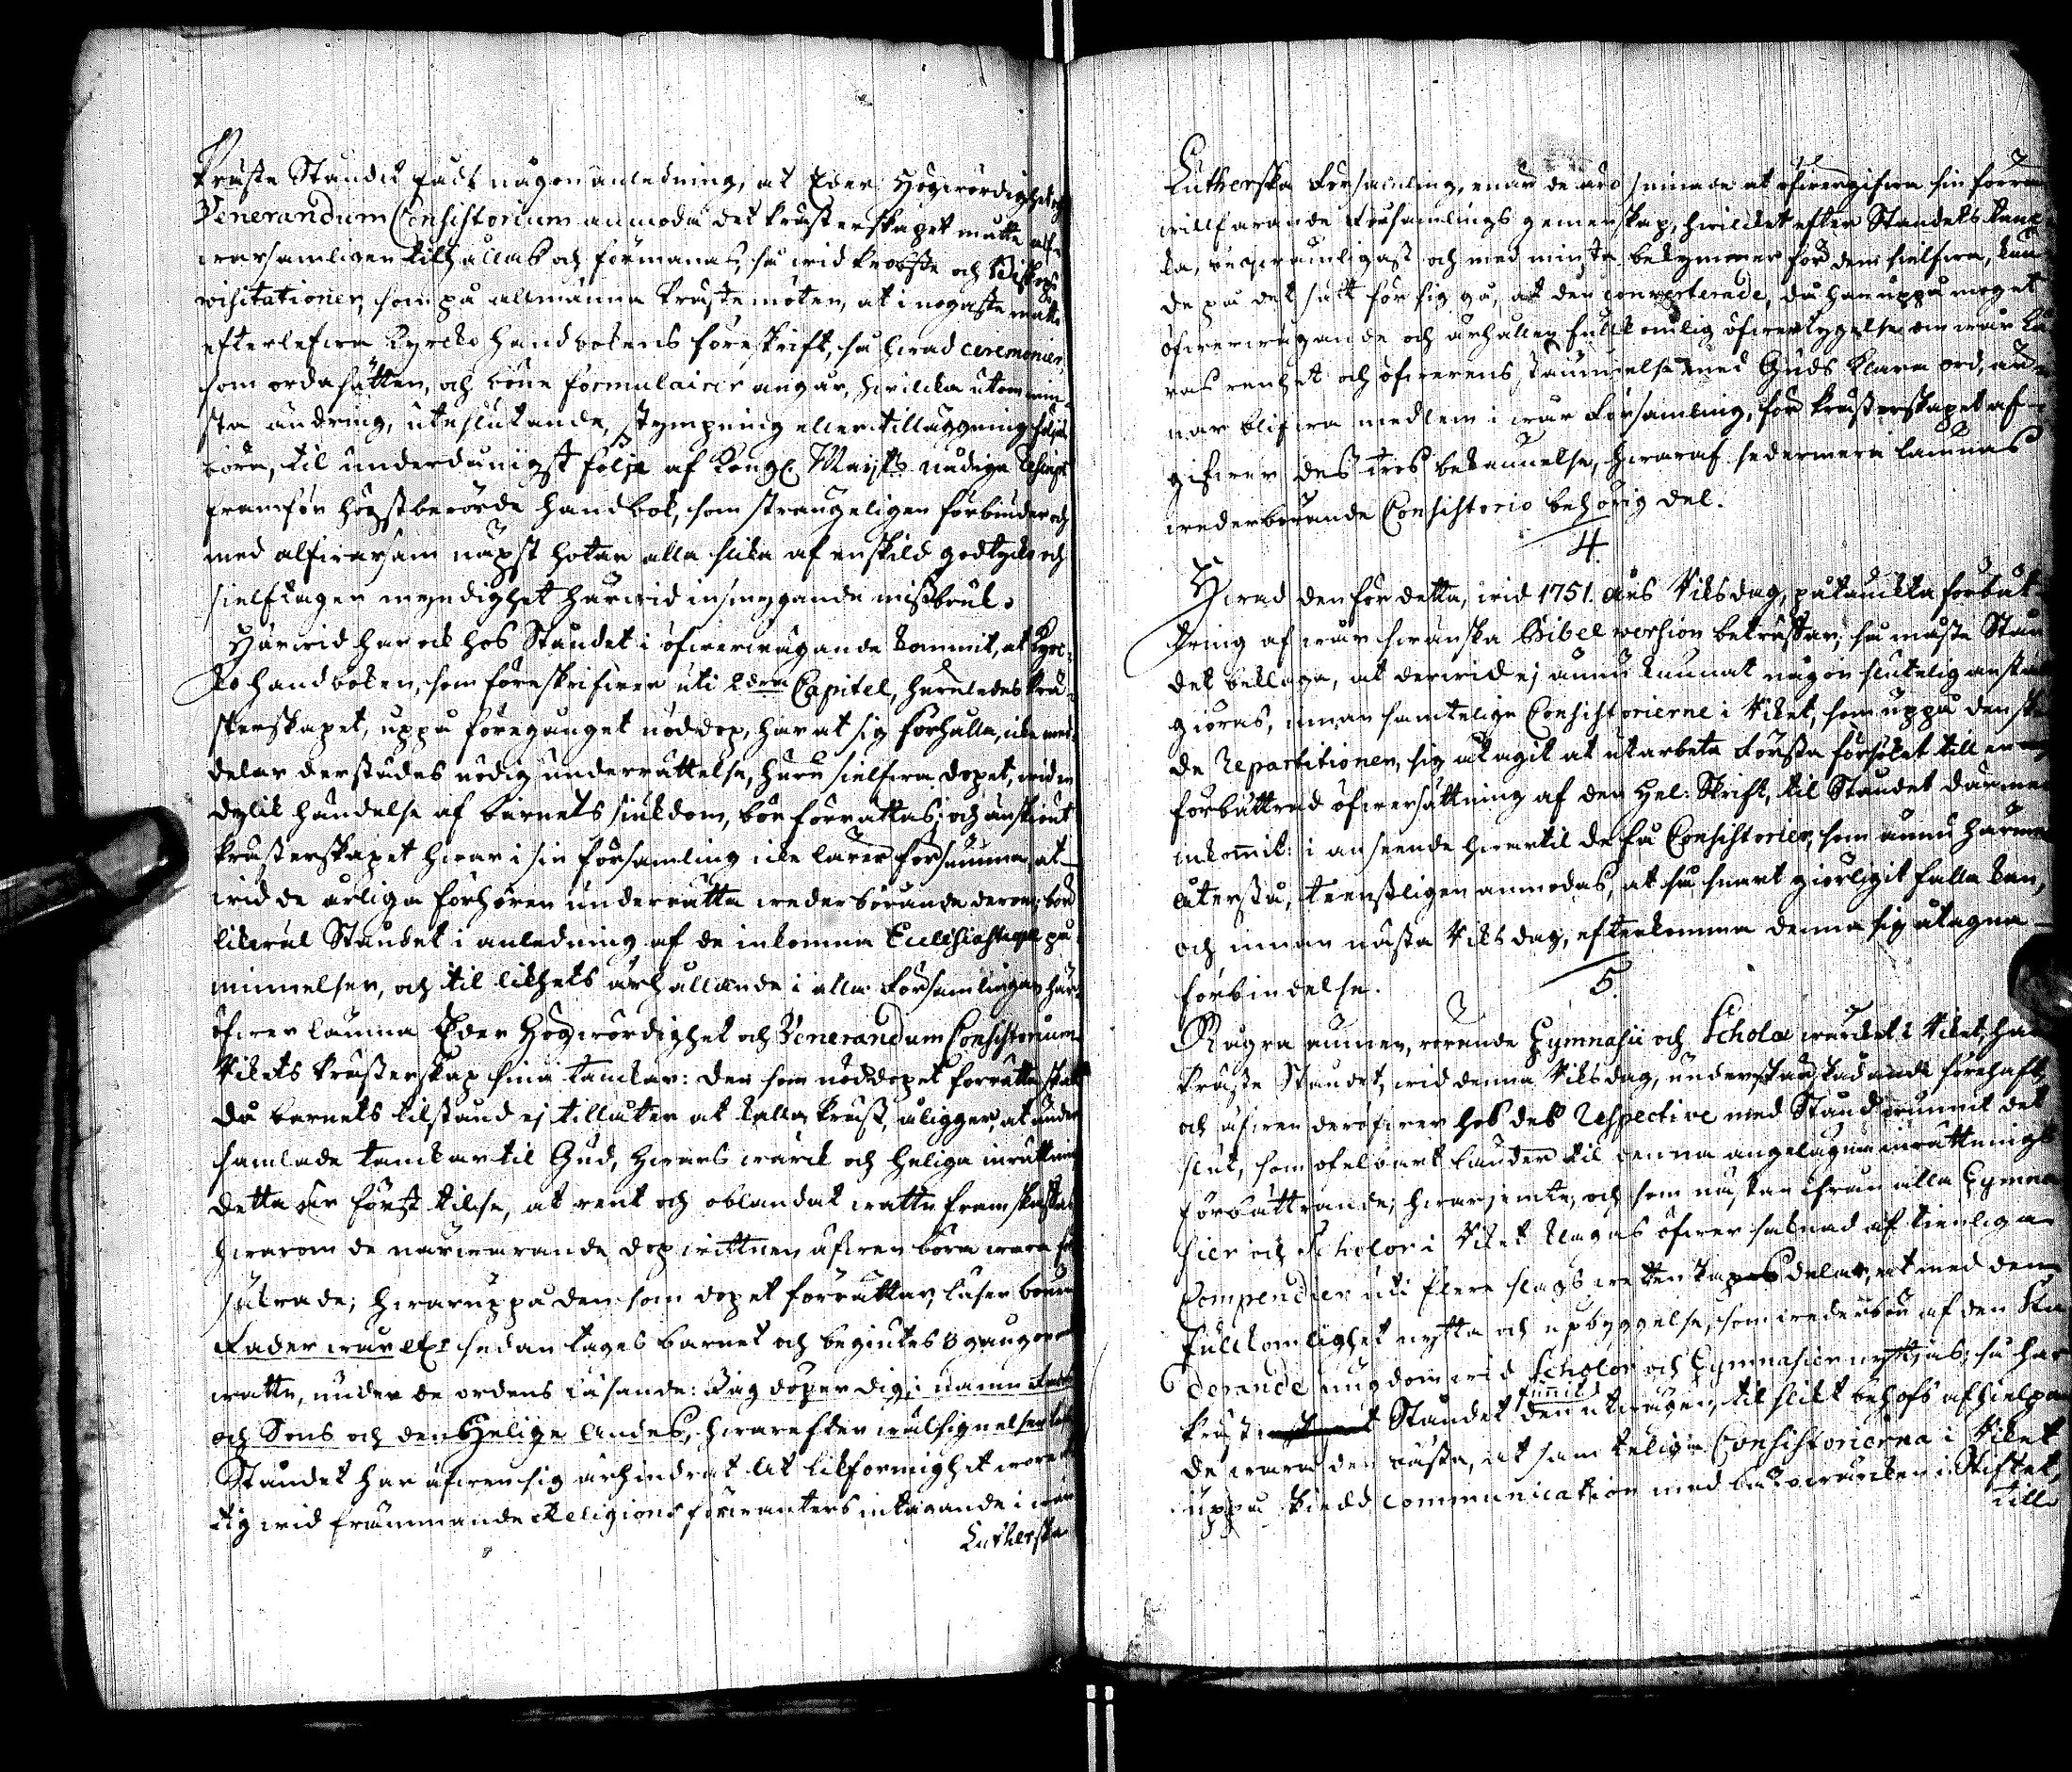 Präste Ståndet fådt någon anledning, at Eder Högwördighet och
Venerandum Consistorium anmoda det Prästerskapet måtte alf-
warsamligen tilhållas och förmanas, så wid Probste och Biskops
visitationer, som på allmänna Prästemöten, at i nogaste måtto
efterlefwa Kyrcko handbokens föreskrift, så hwad ceremonier,
som ordasätten, och böne formulairer angår, hwilcka utom min-
sta ändring, uteslutande, stympning eller tilläggning följas
böra, til underdånigst följe af Kongl. Maij:ts nådiga Rescript
framför högstberörde handbok, som strängeligen förbinder och
med alfwarsam näpst hotar alla slika af enskild godtycko och
sielftagen myndighet härwid insmygande missbruk.
Härwid har ock hos Ståndet i öfwerwägande kommit, at Kyrc-
ko handboken, som föreskrifwer uti 2dra Capitel, huruledes Prä-
sterskapet, uppå föregånget nöddop, har at sig förhålla, icke med-
delar derstädes nödig underrättelse, huru sielfwa dopet, wid en
dylik händelse af barnets siukdom, bör förrättas; och ånskiönt
Prästerskapet hwar i sin församling icke lärer försumma, at
wid de årliga förhören underrätta wederbörande derom; bord
likwäl Ståndet i anledning af de inkomna Ecclesiastique på-
minnelser, och til likhets ärhållande i alla Församlingar här-
öfwer lämna Eder Högwördighet och Venerandum Consistorium
Rikets Prästerskap sina tanckar: Den som nöddopet förrätta skal
då barnets tilstånd ej tillåter at kalla Präst, åligger, at under
samlade tanckar til Gud, hwars wärck och heliga inrättning
detta är först tilse, at rent och oblandat watten framskaffas
hwarom de närwarande dop wittnen äfwen böra wara för-
säkrade; hwaruppå den som dopet förrättar, läser bönen
Fader wår etc sedan tages barnet och begiutes 3 gånger med
watten, under de ordens läsande: Jag döper dig i namn Faders
och Sons och den Helige Andes, hwarefter wälsignelsen läses
Ståndet har äfwen sig ärhindrat at likformighet wore nö-
dig wid främmande Religions förwanters intagande i wår
Lutherska
Lutherska Församling, enär de äro sinnade at öfwergifwa sin förra
willfarande Församlings gemenskap, hwilcket efter Ståndets tanc-
ka, beqwämligast och med minsta bekymmer för dem sielfwa, kun-
de på det sätt för sig gå, at den converterade, då han uppå moget
öfwerwägande och ärhållen fullkomlig öfwertygelse om wår Lä-
ras renhet och öfwerensstämmelse med Guds klara ord, äm-
nar blifwa medlem i wår Församling, för Prästerskapet af-
gifwer des tros bekännelse, hwaraf sedermera lämnas
wederbörande Consistorio behörig del.
4.
Hwad den för detta, wid 1751 års Riksdag, påtänckta förbät-
tring af wår swänska Bibel version beträffar, så måste Stån-
det beklaga, at derwid ej ännu kunnat någon slutelig anstalt
giöras, innan samtelige Consistorierne i Riket, som uppå den ske-
de Repartitionen, sig åtagit at utarbeta första försöket till en
förbättrad öfwersättning af den Hel: Skrift, til Ståndet därmed
inkommit: i anseende hwartil de få Consistorier, som ännu härmed
återstå, teenstligen anmodas, at så snart giörligit falla kan,
och innan nästa Riksdag, efterkomma denna sig åtagna
förbindelse.
5.
Några ämnen, rörande Gymnasii och Scholæ wärcket i Riket, har
Präste Ståndet, wid denna Riksdag, under skärskådande förehaft,
och äfwen deröfwer hos des Respective med Stånd wunnit det
slut, som ofelbart länder til denna angelägna inrättnings
förbättrande; hwarjemte, och som nästan ifrån alla Gymna-
sier och Scholor i Riket klagas öfwer saknad af tienliga
Compendier uti flere slags wettenskapes delar, at med den
fullkomlighet nytta och upbyggelse, som wederbör af den Stu-
derande ungdom wid Scholor och Gymnasier nyttjas; så har
Präste Ståndet funnit den utwägen, til slikt behofs afhielpan-
de wara den bästa, at samtelige Consistorierna i Riket
uppå skiedd communication med Lärowärcken i Stiftet,
till